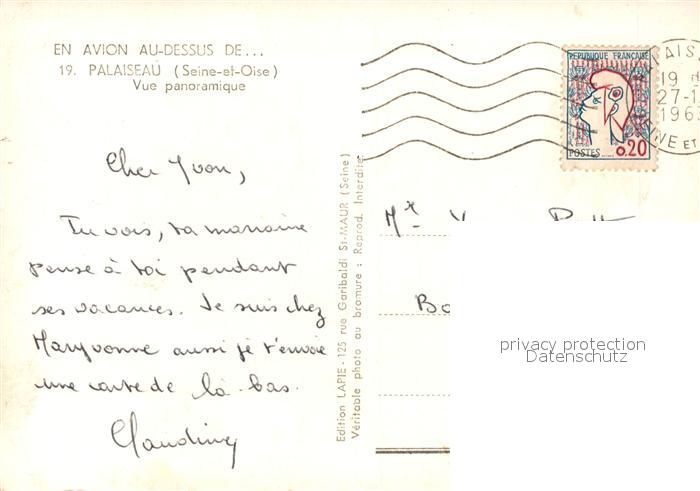 EN AVION AU-DESSUS DE...
19. PALAISEAU (Seine-et-Oise)
Vue panoramique
Cher Yvon,
Tu vois, ta marraine
pense à toi pendant
ses vacances. Je suis chez
Maryvonne aussi je t'envoie
une carte de là-bas.
Claudine
Edition LAPIE - 125 rue Garibaldi St-MAUR (Seine)
Véritable photo au bromure : Reprod. Interdite
REPUBLIQUE FRANÇAISE
POSTES
0.20
19
27-1
1963
NE ET
Mr
Bo
privacy protection
Datenschutz